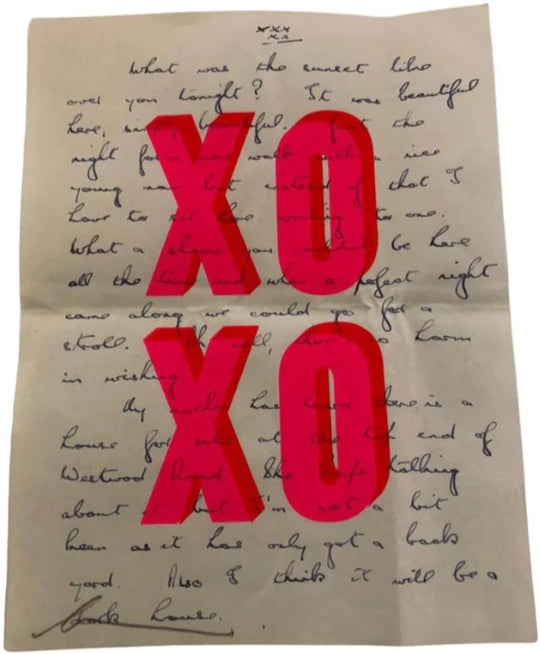 xxx
xx
What was the sunset like
over you tonight? It was beautiful
here, simply beautiful. Just the
night for a nice walk with a nice
young man but instead of that I
have to sit here writing to one.
What a shame you couldn't be here
all the time and when a perfect night
came along we could go for a
stroll. Oh well, there's no harm
in wishing.
My mother has heard there is a
house for sale at the top end of
Westwood Road. She keeps talking
about it but I'm not a bit
keen as it has only got a back
yard. Also I think it will be a
back house.
XO
XO